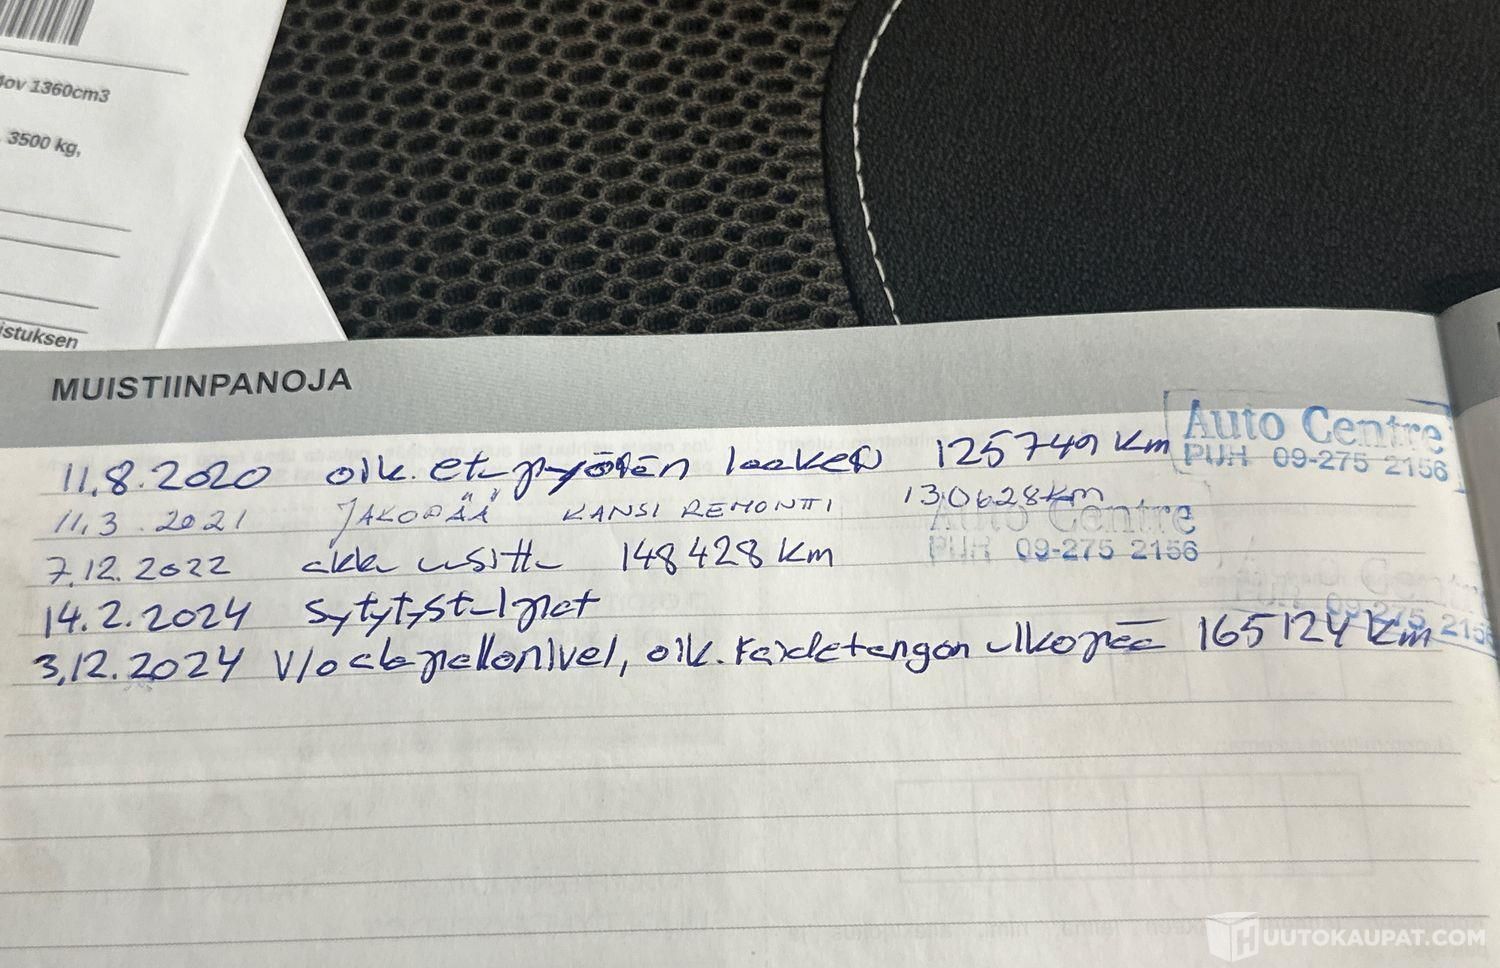 4ov 1360cm3
3500 kg,
istuksen
MUISTIINPANOJA
11.8.2020 oik. etupyörän laakeri 125749 km
Auto Centre
PUH 09-275 2156
11.3.2021 JAKOPÄÄ KANSI REMONTTI 130628km
Auto Centre
PUH 09-275 2156
7.12.2022 akku uusittu 148428 km
14.2.2024 sytytystulpat
o Centre
PUH 09-275 2156
3.12.2024 V/o alapallonivel, oik. raidetangon ulkopää 165124 km
HUUTOKAUPAT.COM